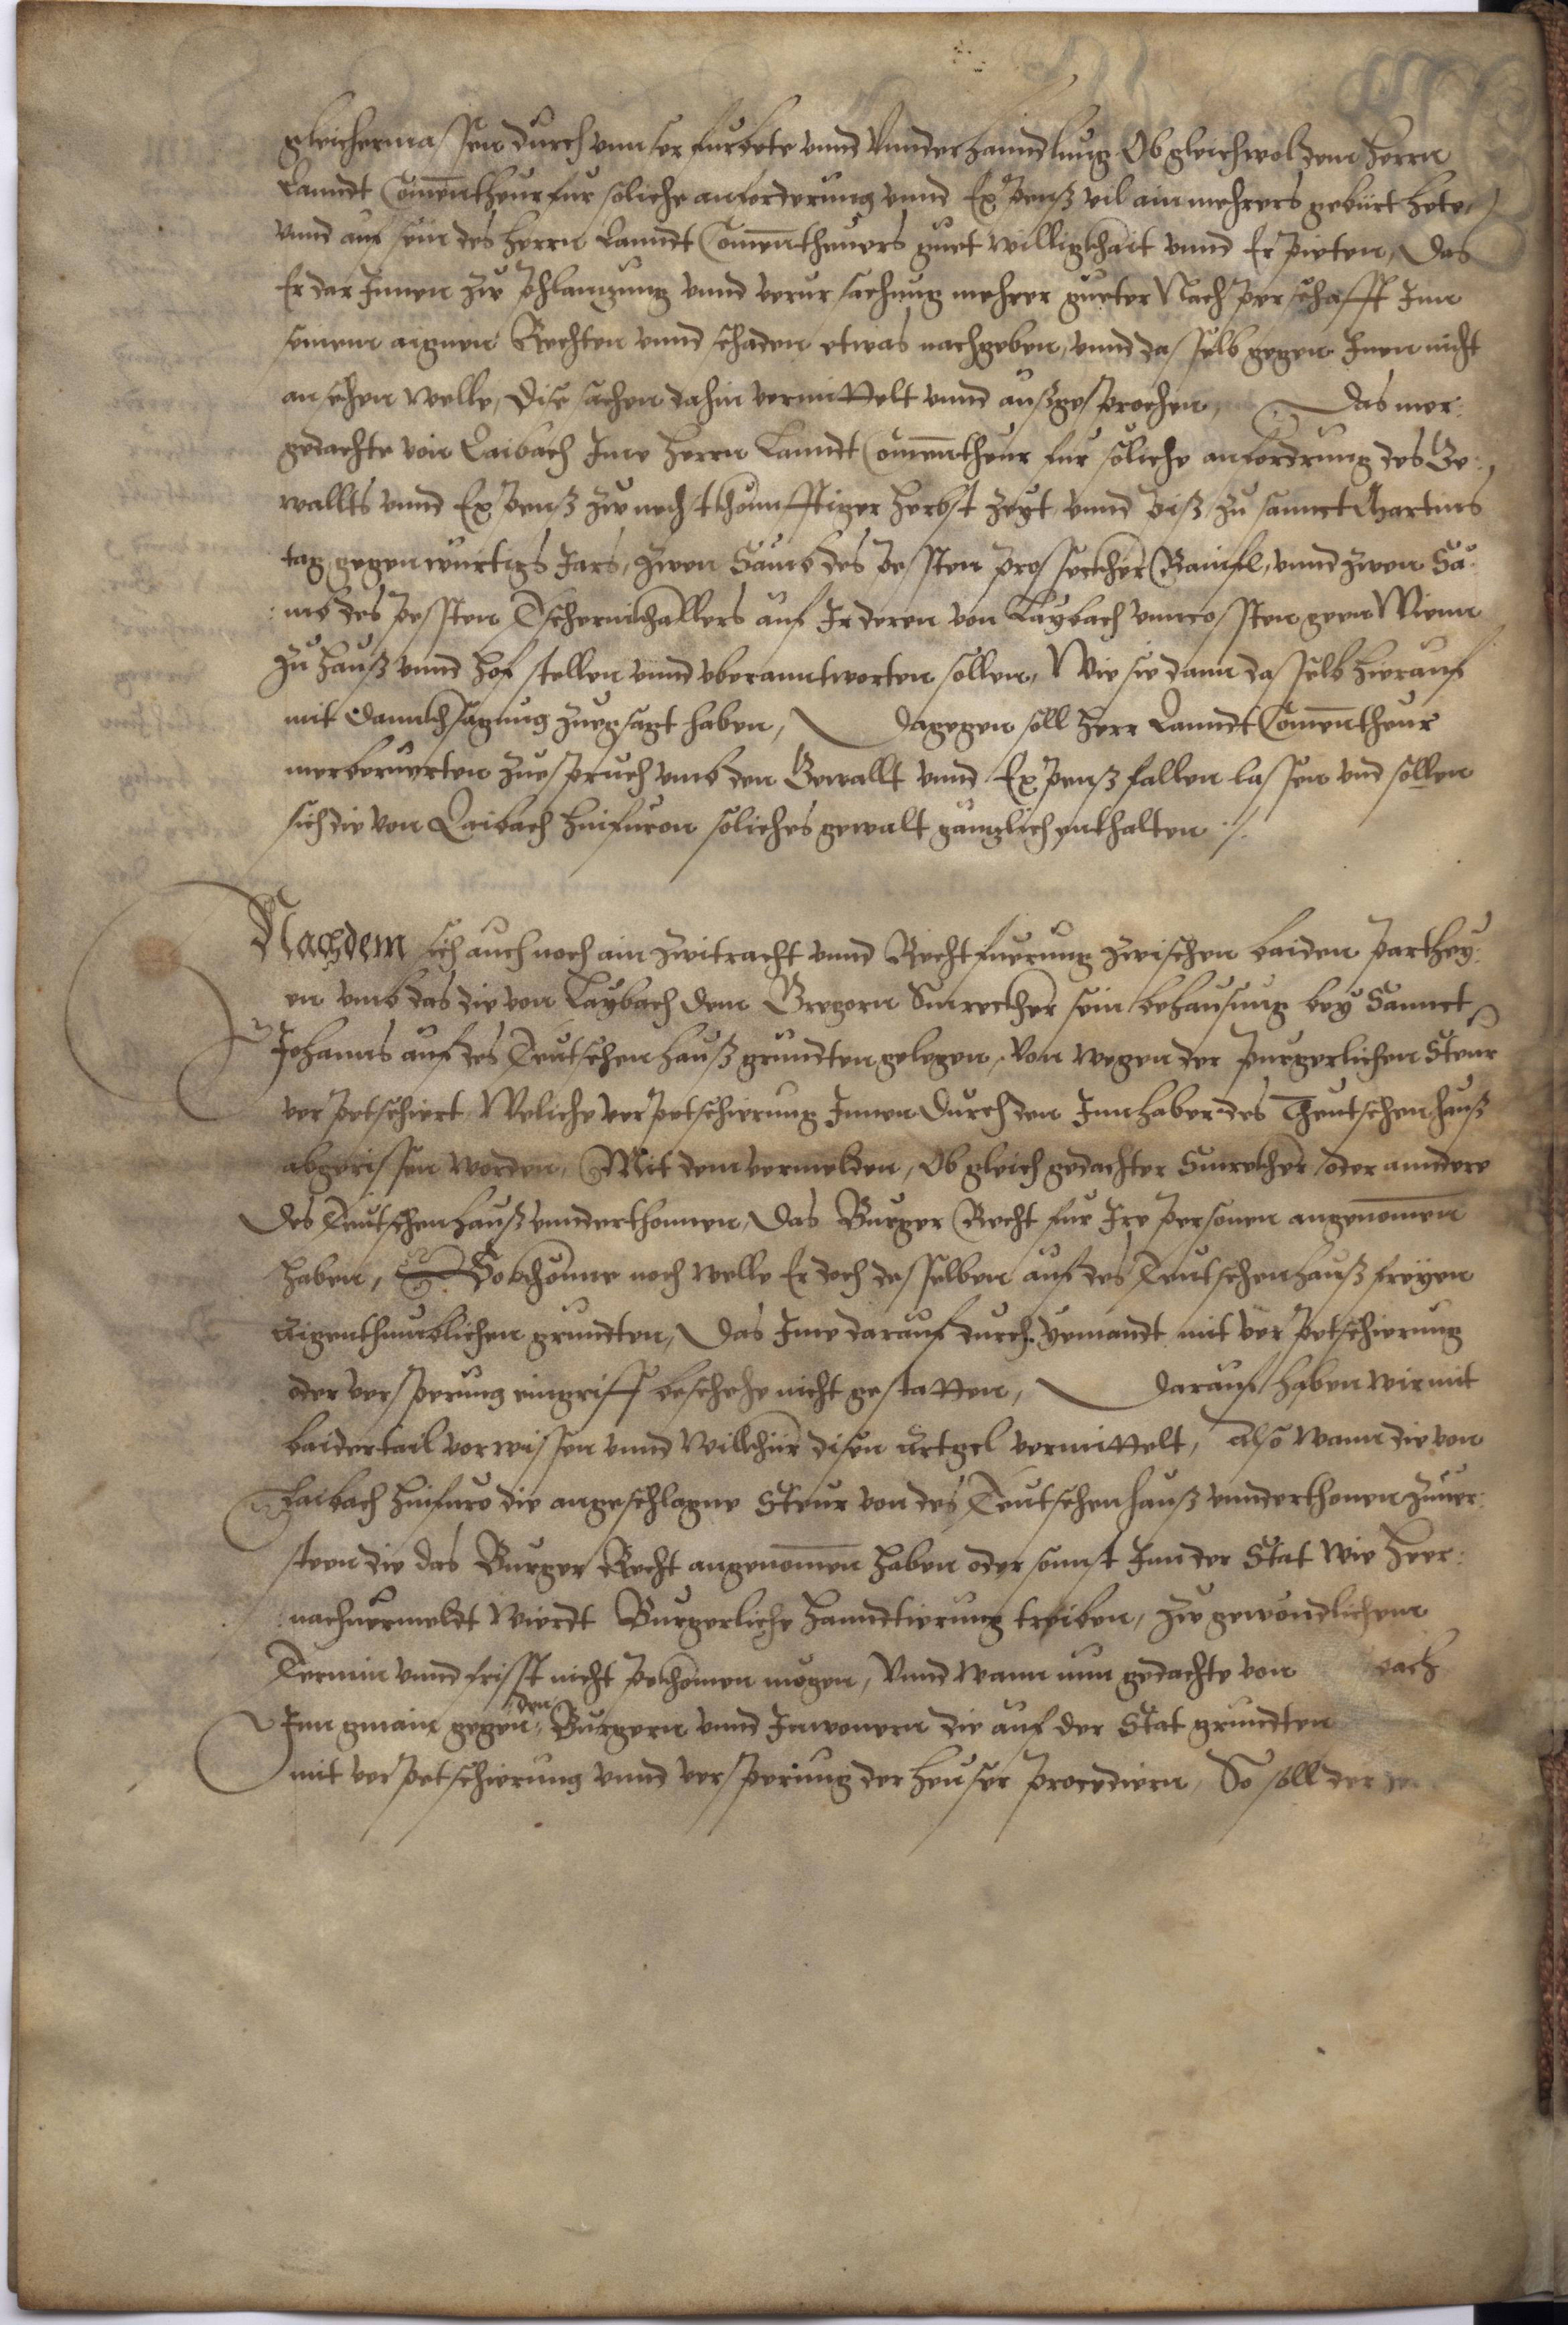 gleichermassen durch unnser furbete unnd Unnderhanndlung Obgleichwol dem herrn
Lanndt Comentheur fur soliche anforderung unnd Expenß vil ain mehrers gebürt hete,
unnd auf sein des herrn Lanndt Comenntheuers guetwilligkhait unnd Erpieten, Das
Er dar Innen zu phlanzung unnd verursachung mehrer gueter Nachperschafft Inn
seinem aignen Rechten unnd schaden etwas nachgeben, unnd dasselb gegen Inen nicht
ansehen welle, Dise sachen dahin vermittelt unnd außgesprochen, Das mer:
gedachte von Laibach Ime herrn Lanndt Comenntheur fur soliche anfordrung des Ge:
wallts unnd Expenß zu nechstkhunfftiger herbst Zeyt unnd biß zu sannct Marteins
tag gegenwürtigs Jars, Zwen Sämb des pessten prossecher Rainfl, unnd zwen Sä:
:mb des pessten Tschernickhallers auf Ir deren von Laybach uncossten geen Wienn
zu hauß unnd hof stellen unnd uberanntworten sollen, Wie sie dann dasselb hierauf
mit Dannckhsagung zuegsagt haben, Dagegen soll herr Lanndt Comenntheur
merberuerten Zuespruch umb den Gewallt unnd Expenß fallen lassen und sollen
sich die von Laibach hinfuron soliches gewalt gänzlich enthalten ./.
Nachdem sich auch noch ain zwitracht unnd Rechtfuerung zwischen baiden parthey:
en umb das die von Laybach dem Gregorn Smrekher sein behausung bey Sannct
Johanns auf des Teutschenhauß gründten gelegen, von wegen der purgerlichen Steur
verpetschiert Weliche verpetschierung Innen durch den Innhaber des Theutschenhauß
abgerissen worden, Mit dem vermelden, Ob gleich gedachter Smrekher oder anndere
des Teutschenhauß unnderthonnen, Das Burger Recht fur Ire personen angenomen
haben, So khönne noch welle Er doch desselben auf des Teutschenhauß freyen
Aigenthumblichen grundten, Das Ime darauf durch yemandt mit verpetschierung
oder versperung eingriff beschehe nicht gestatten, Darauf haben wir mit
baidertail vorwissen unnd Willkhür disen artgel vermittelt, Also wann die von
Laibach hinfuro die angeschlagne Steur von des Teutschenhauß unnderthonen Zuver:
steen die das Burger Recht angenomen haben oder sonnst Inn der Stat wie heer:
:nachvermeldt wierdt Burgerliche hanndtierung treiben, zu gewöndlichem
Termin unnd frisst nicht pekhomen mögen, Unnd wann nun gedachte von bach
Inn gmain gegen den Burgern unnd Inwonern die auf der Stat grundten
mit verpetschierung unnd versperung der heuser procediern, So soll der